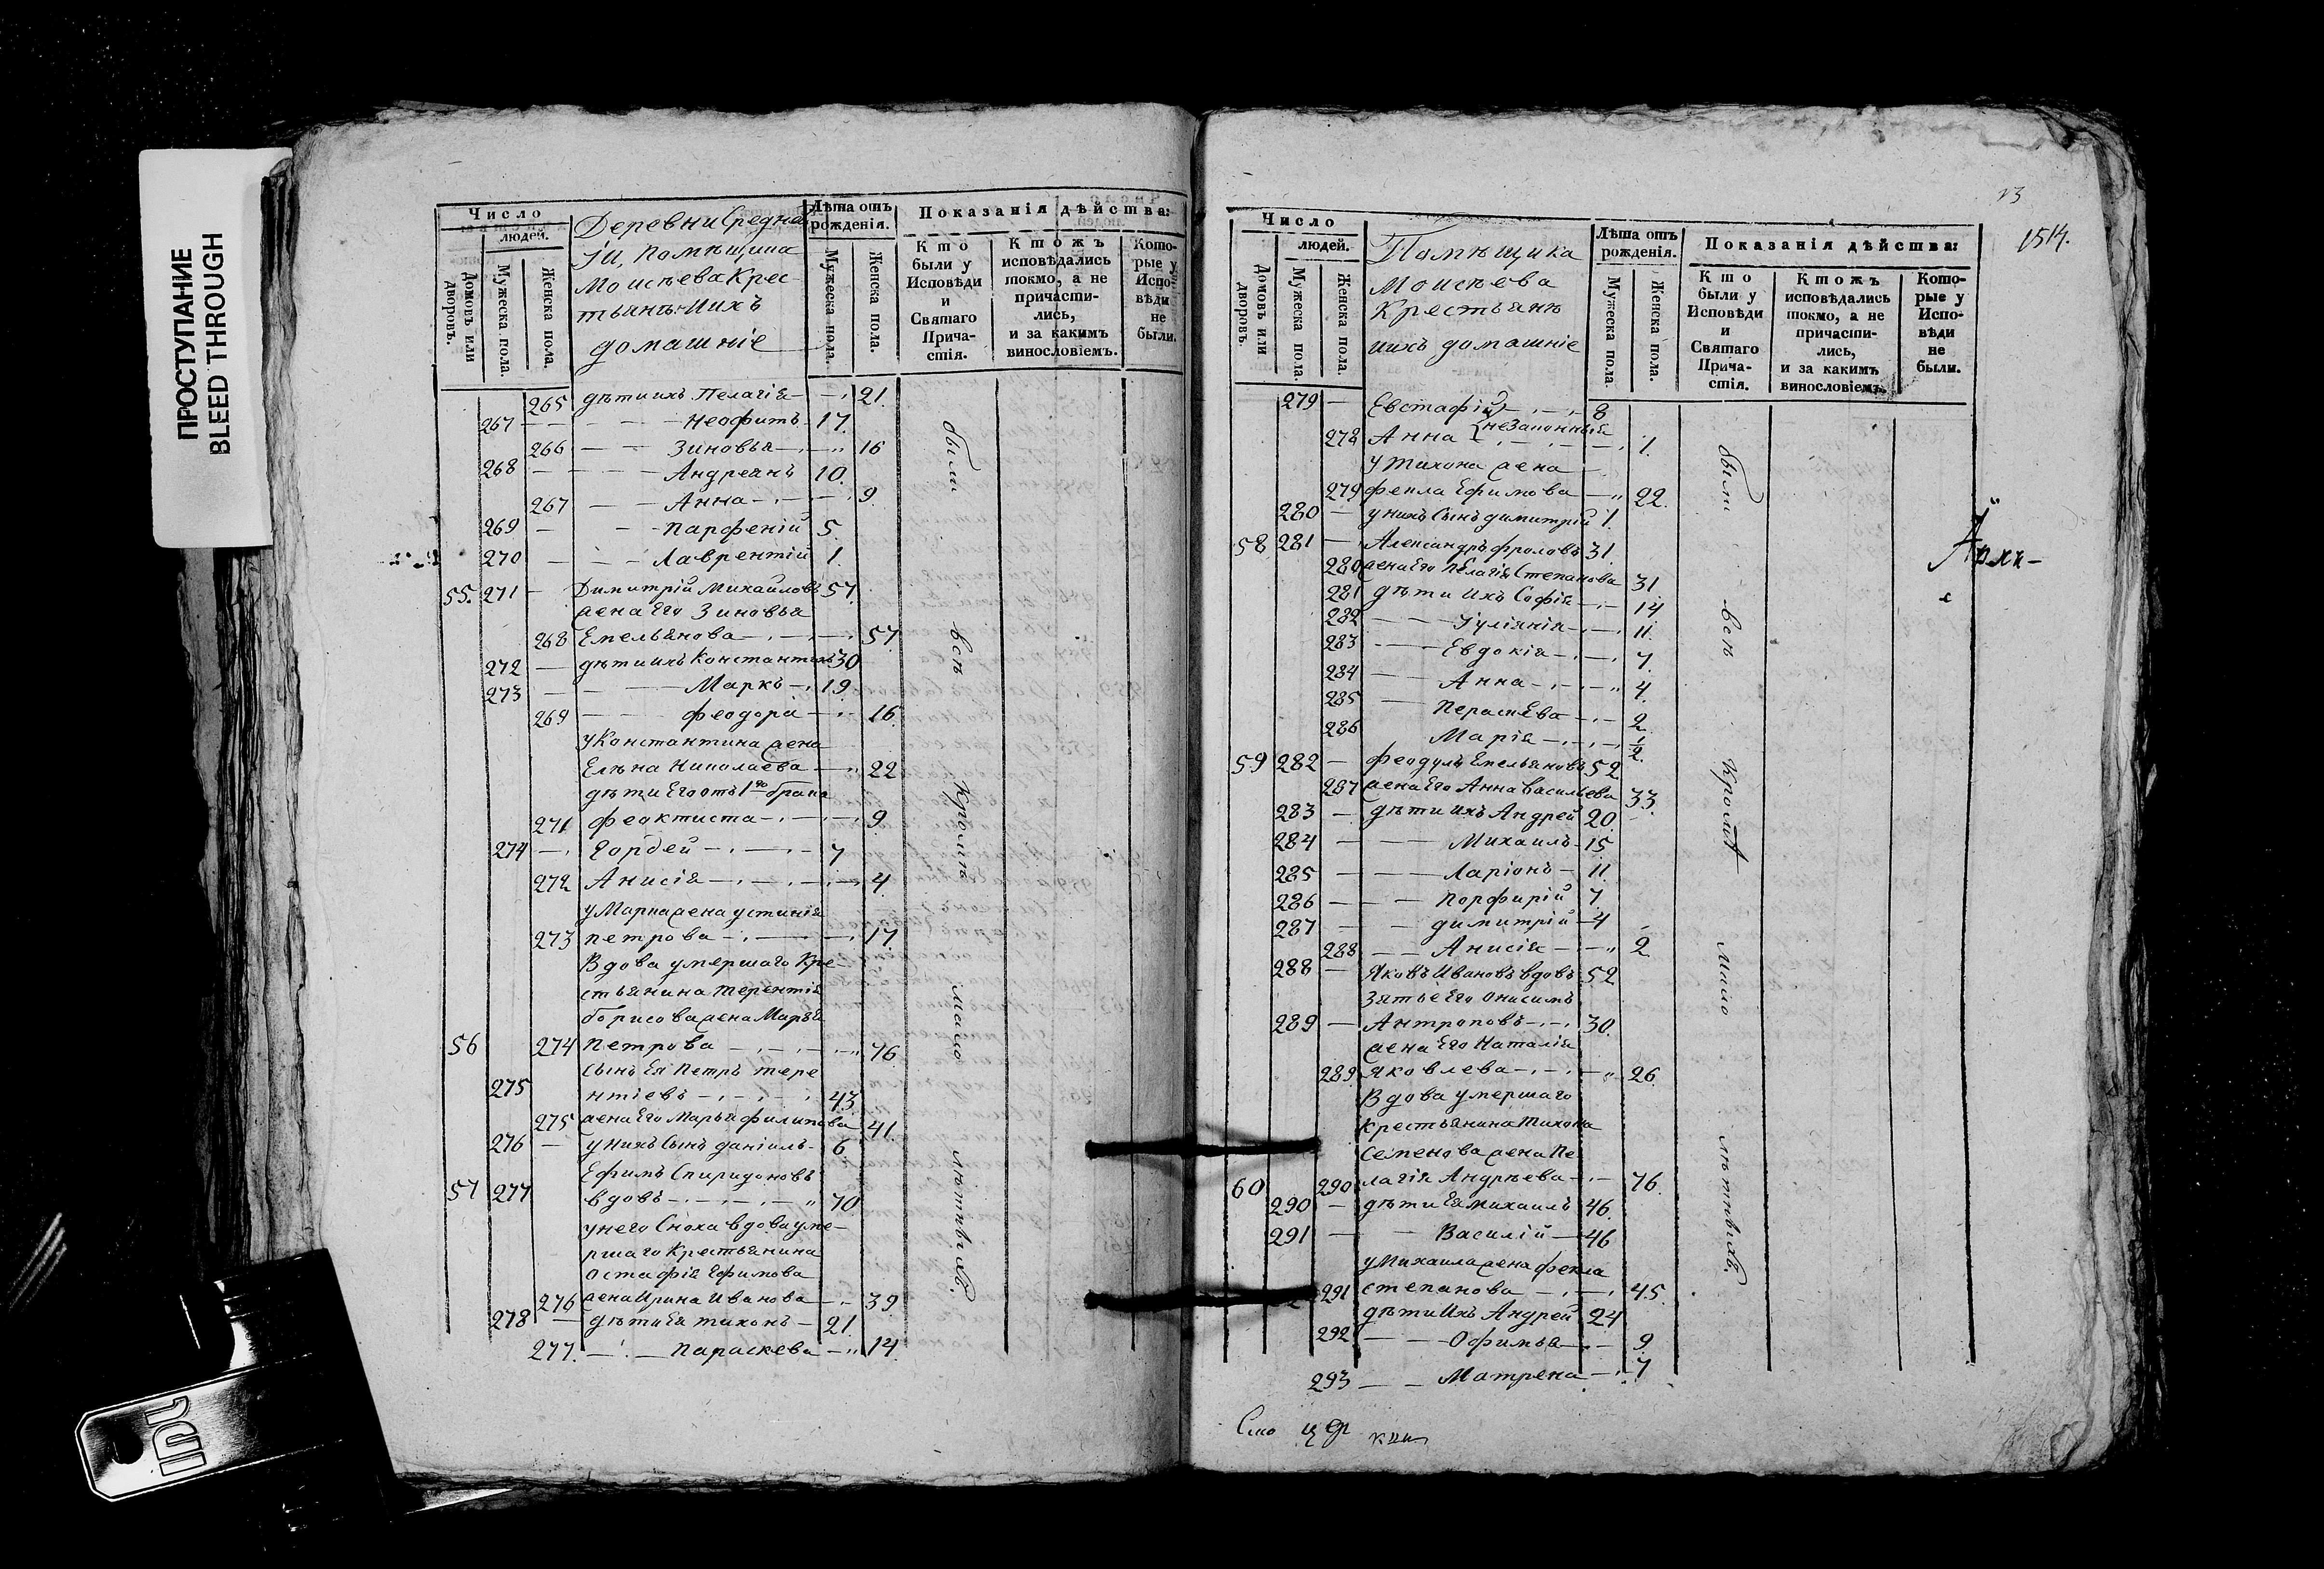 ПРОСТУПАНИЕ
BLEED THROUGH
Число
людей.
Домовъ или дворовъ.
Мужеска пола.
Женска пола.
Деревни Средна
помѣщика
Моисѣева Крес-
тьянъ Ихъ
домашніе
Лѣта отъ рожденія.
Мужеска пола.
Женска пола.
Показанія дѣйства:
Кто были у Исповѣди и Святаго Причастія.
Ктожъ исповѣдались токмо, а не причастились, и за какимъ винословіемъ.
Которые у Исповѣди не были.
265 дѣти ихъ Пелагія 21.
267 Неофитъ 17.
266 Зиновья 16
268 Андреянъ 10.
267 Анна 9.
269 Парфеній 5.
270 Лаврентій 1.
55. 271 Димитрій Михаиловъ 57.
жена Его Зиновья
268 Емельянова 57.
272 дѣти ихъ Константинъ 30
273 Маркъ 19.
269 Феодора 16.
у Константина жена
Елѣна Николаева 22
дѣти Его отъ 1го брака
271 Феоктиста 9.
274 Гордей 7
272 Анисія 4.
у Марка жена устинія
273 петрова 17.
Вдова умершаго Кре-
стьянина терентія
борисова жена Марья
56 274 Петрова 76.
сынъ Ея Петръ тере
275 нтіевъ 43
275 жена Его Марья филипова 41.
276 у нихъ Сынъ даніилъ 6.
Ефимъ Спиридоновъ
57 277 вдовъ 70.
у него Сноха вдова уме-
ршаго Крестьянина
Остафія Ефимова
276 жена Ирина Иванова 39
278 дѣти Ея тихонъ 21.
277. Параскева 14.
были всѣ Кромѣ мало лѣтнѣхъ.
23
1514.
Число
людей.
Домовъ или дворовъ.
Мужеска пола.
Женска пола.
Помѣщика
Моисѣева
Крестьянѣ
ихъ домашніе
Лѣта отъ рожденія.
Мужеска пола.
Женска пола.
Показанія дѣйства:
Кто были у Исповѣди и Святаго Причастія.
Ктожъ исповѣдались токмо, а не причастились, и за какимъ винословіемъ.
Которые у Исповѣди не были.
279 Евстафій 8
незаконныя
278 Анна 1.
у Тихона жена
279 Фекла Ефимова 22.
280 у нихъ Сынъ димитрій 1.
58 281 Александръ фроловъ 31.
280 жена Его Пелагія Степанова 31
281 дѣти Ихъ Софія 14
282 Іуліянія 11.
283 Евдокія 7.
284 Анна 4.
285 Параскева 2
286 Марія 1/2.
59 282 Феодулъ Емельяновъ 52
287 жена Его Анна Васильева 33.
283 дѣти ихъ Андрей 20.
284 Михаилъ 15
285 Ларіонъ 11.
286 Порфирій 7.
287 димитрій 4
288 Анисія 2
288 Яковъ Ивановъ вдовъ 52
Зятье Его Онисимъ
289 Антроповъ 30.
жена Его Наталія
289. Яковлева 26.
Вдова умершаго
Крестьянина Тихона
Семенова жена Пе
60 290 лагія Андрѣева 76.
290 дѣти Ея Михаилъ 46.
291 Василій 46
у Михаила жена Фекла
291 степанова 45.
дѣти Ихъ Андрей 24
292 Офимья 9.
293 Матрена 7
были всѣ Кромѣ Мало лѣтнѣхъ.